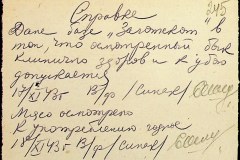 245
Справка
Дана базе „Заготскот" в
том, что осмотренный бык
клинически здоров и к убою
допускается
17/XI 43г. В/вр /Синек/
Мясо осмотрено
К употреблению годно
18/XI 43г. В/вр /Синек/